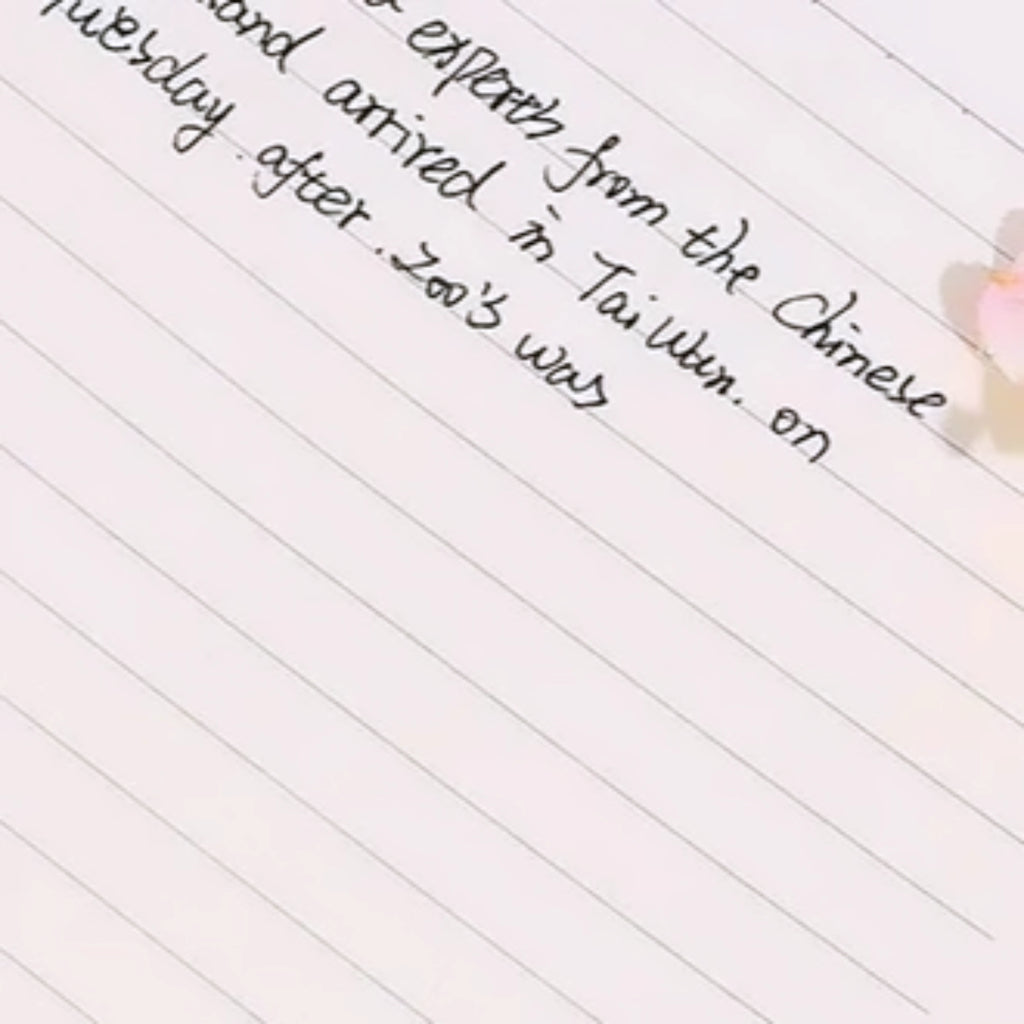 experts from the Chinese
arrived in TaiWan. on
after. Zoo's was